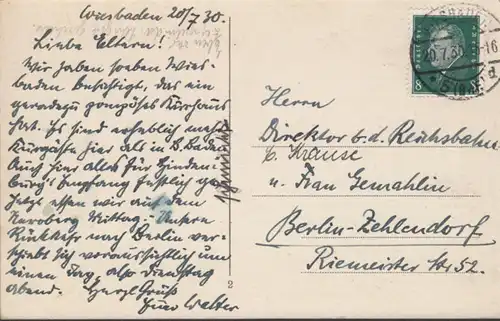 Wiesbaden 20/7 30.
Liebe Eltern!
Wir haben soeben Wies-
baden besichtigt, das ein
geradezu pompöses Kurhaus
hat. Es sind erheblich mehr
Kurgäste hier als in B. Baden
Auch hier alles für Hinden-
burg's Empfang festlich
Jetzt essen wir auf dem
Neroberg Mittag. - Unsere
Rückkehr nach Berlin ver-
schiebt sich voraussichtlich um
einen Tag, also Dienstag
Abend. Herzl. Gruß
Euer Walter
geschmückt
2
20.7.30
8
Herrn
Direktor b. d. Reichsbahn
C. Krause
u. Frau Gemahlin
Berlin-Zehlendorf
Riemeister Str 52.